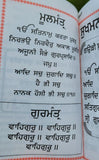 ਮੂਲਮੰਤ੍ਰ
ੴ ਸਤਿਨਾਮੁ ਕਰਤਾ ਪੁਰਖੁ
ਨਿਰਭਉ ਨਿਰਵੈਰੁ ਅਕਾਲ ਮੂਰਤਿ
ਅਜੂਨੀ ਸੈਭੰ ਗੁਰਪ੍ਰਸਾਦਿ॥
॥ ਜਪੁ ॥
ਆਦਿ ਸਚੁ ਜੁਗਾਦਿ ਸਚੁ॥
ਹੈ ਭੀ ਸਚੁ
ਨਾਨਕ ਹੋਸੀ ਭੀ ਸਚੁ॥
ਗੁਰਮੰਤ੍ਰ
ਵਾਹਿਗੁਰੂ ॥ ਵਾਹਿਗੁਰੂ ॥
ਵਾਹਿਗੁਰੂ ॥ ਵਾਹਿਗੁਰੂ ॥
ਵਾਹਿਗੁਰੂ ॥